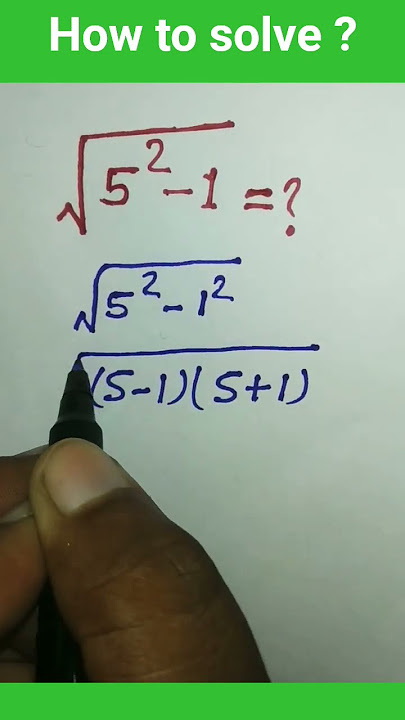 How to solve ?
√(5²-1) = ?
√(5²-1²)
√((5-1)(5+1))